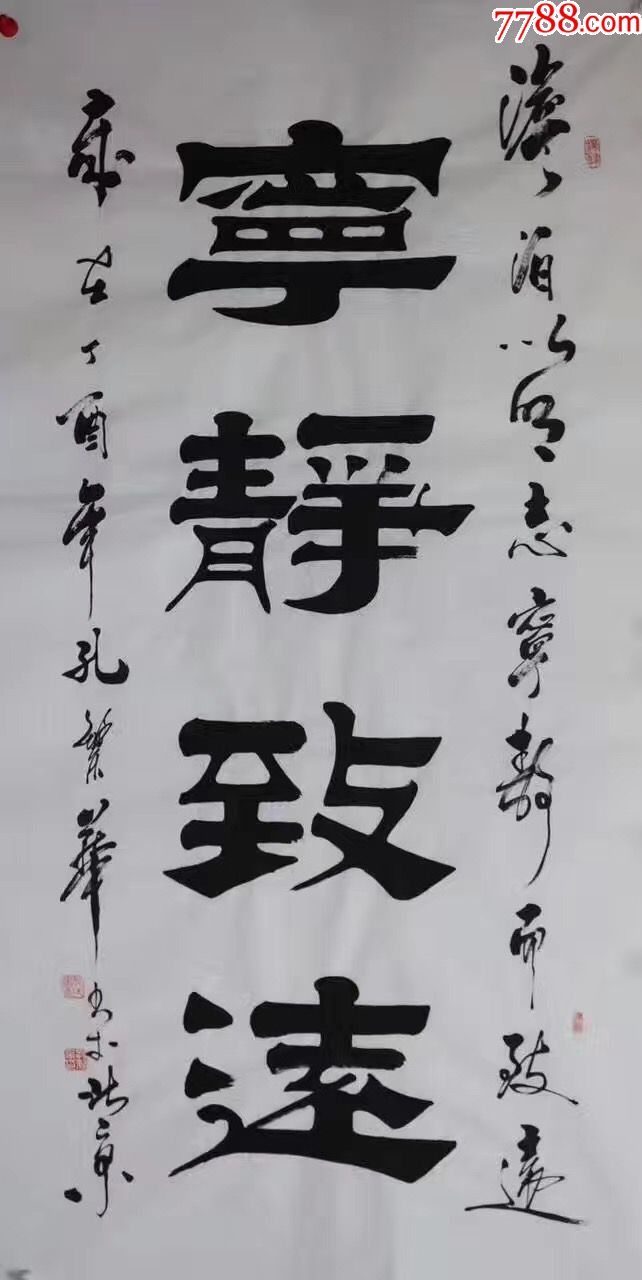 7788.com
澹泊以明志寧靜而致遠
寧靜致遠
歲在丁酉年孔繁華书於北京